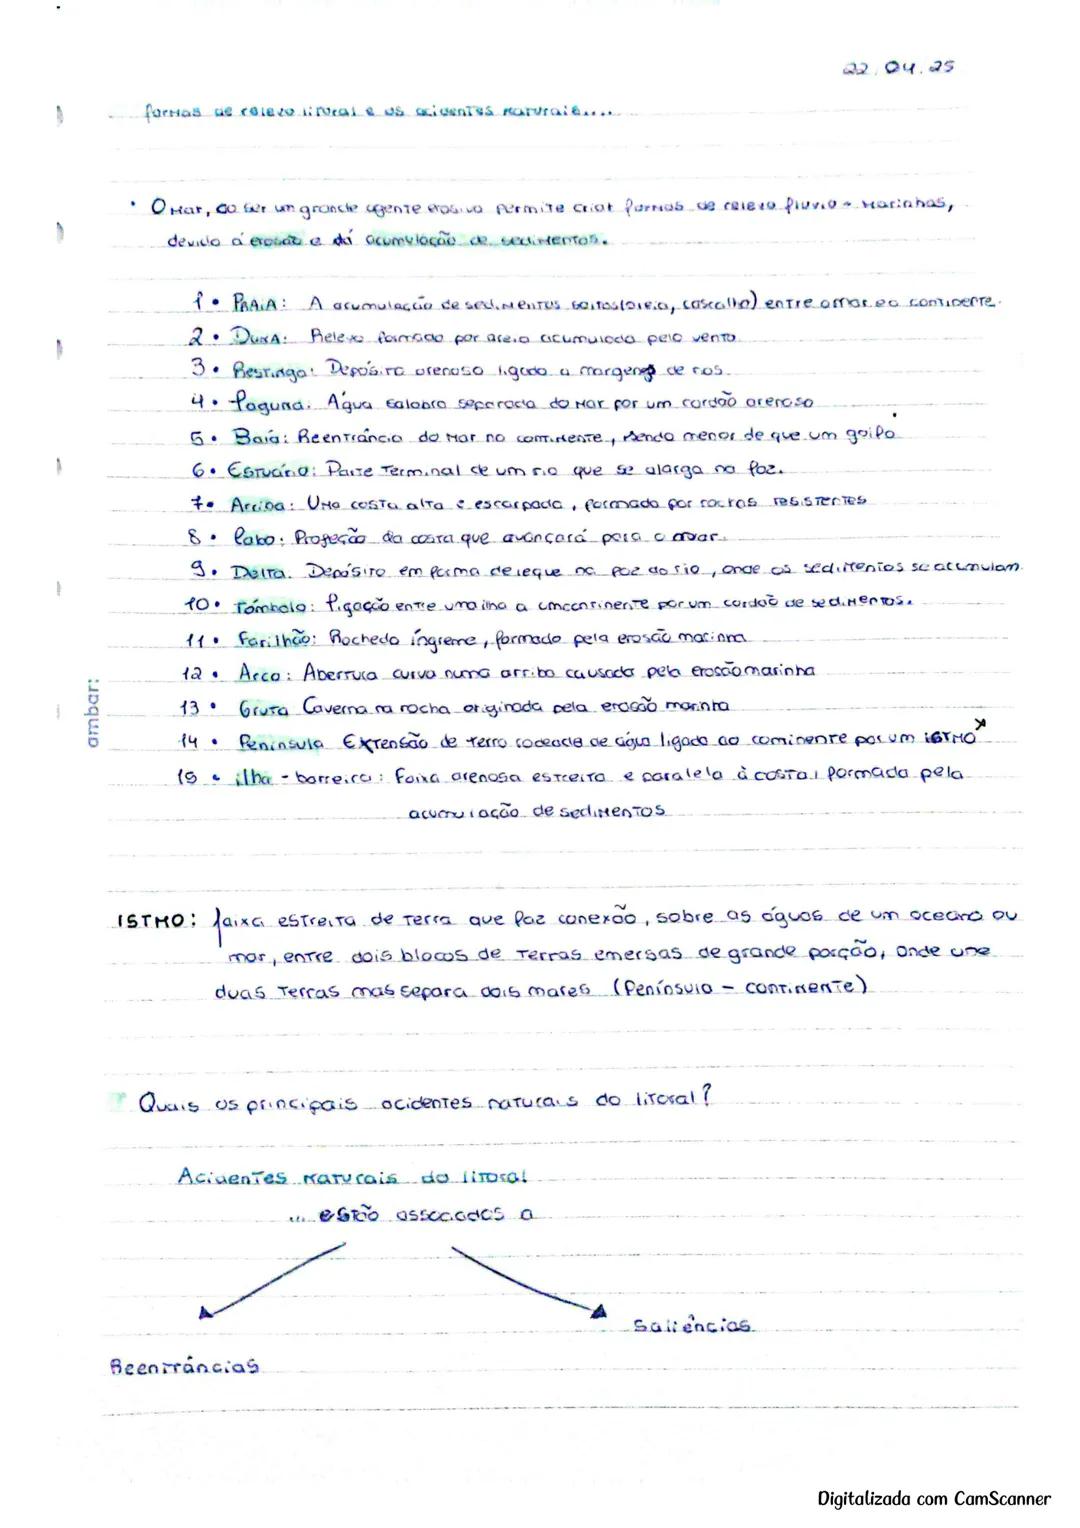 22.04.25
formas de relevo litoral e os acidentes naturais....
• O mar, ao ser um grande agente erosivo permite criar formas de relevo fluvio - marinhas,
devido á erosão e dá acumulação de sedimentos.
1 • PRAIA: A acumulação de sedimentos (areia, cascalho) entre o mar e o continente.
2 • DUNA: Relevo formado por areia acumulada pelo vento
3 • Restinga: Depósito arenoso ligado a margens de rios.
4 • Laguna: Água salobra separada do mar por um cordão arenoso
5 • Baía: Reentrância do mar no continente, sendo menor de que um golfo
6 • Estuário: Parte terminal de um rio que se alarga na foz.
7 • Arriba: Uma costa alta e escarpada, formada por rochas resistentes
8 • Cabo: Projeção da costa que avançará para o mar.
9 • Delta: Depósito em forma de leque na foz do rio, onde os sedimentos se acumulam
10 • Tômbolo: Ligação entre uma ilha a um continente por um cordão de sedimentos.
11 • Farilhão: Rochedo íngreme, formado pela erosão marinha
12 • Arco: Abertura curva numa arriba causada pela erosão marinha
13 • Gruta Caverna na rocha originada pela erosão marinha
14 • Península Extensão de terra rodeada de água ligada ao continente por um istmo
15 • ilha - barreira: Faixa arenosa estreita e paralela à costa, formada pela
acumulação de sedimentos
ISTMO: faixa estreita de terra que faz conexão, sobre as águas de um oceano ou
mar, entre dois blocos de terras emersas de grande porção, onde une
duas terras mas separa dois mares (Península - continente)
Quais os principais acidentes naturais do litoral?
Acidentes naturais do litoral
... estão associados a
Saliências
Reentrâncias
ambar:
Digitalizada com CamScanner